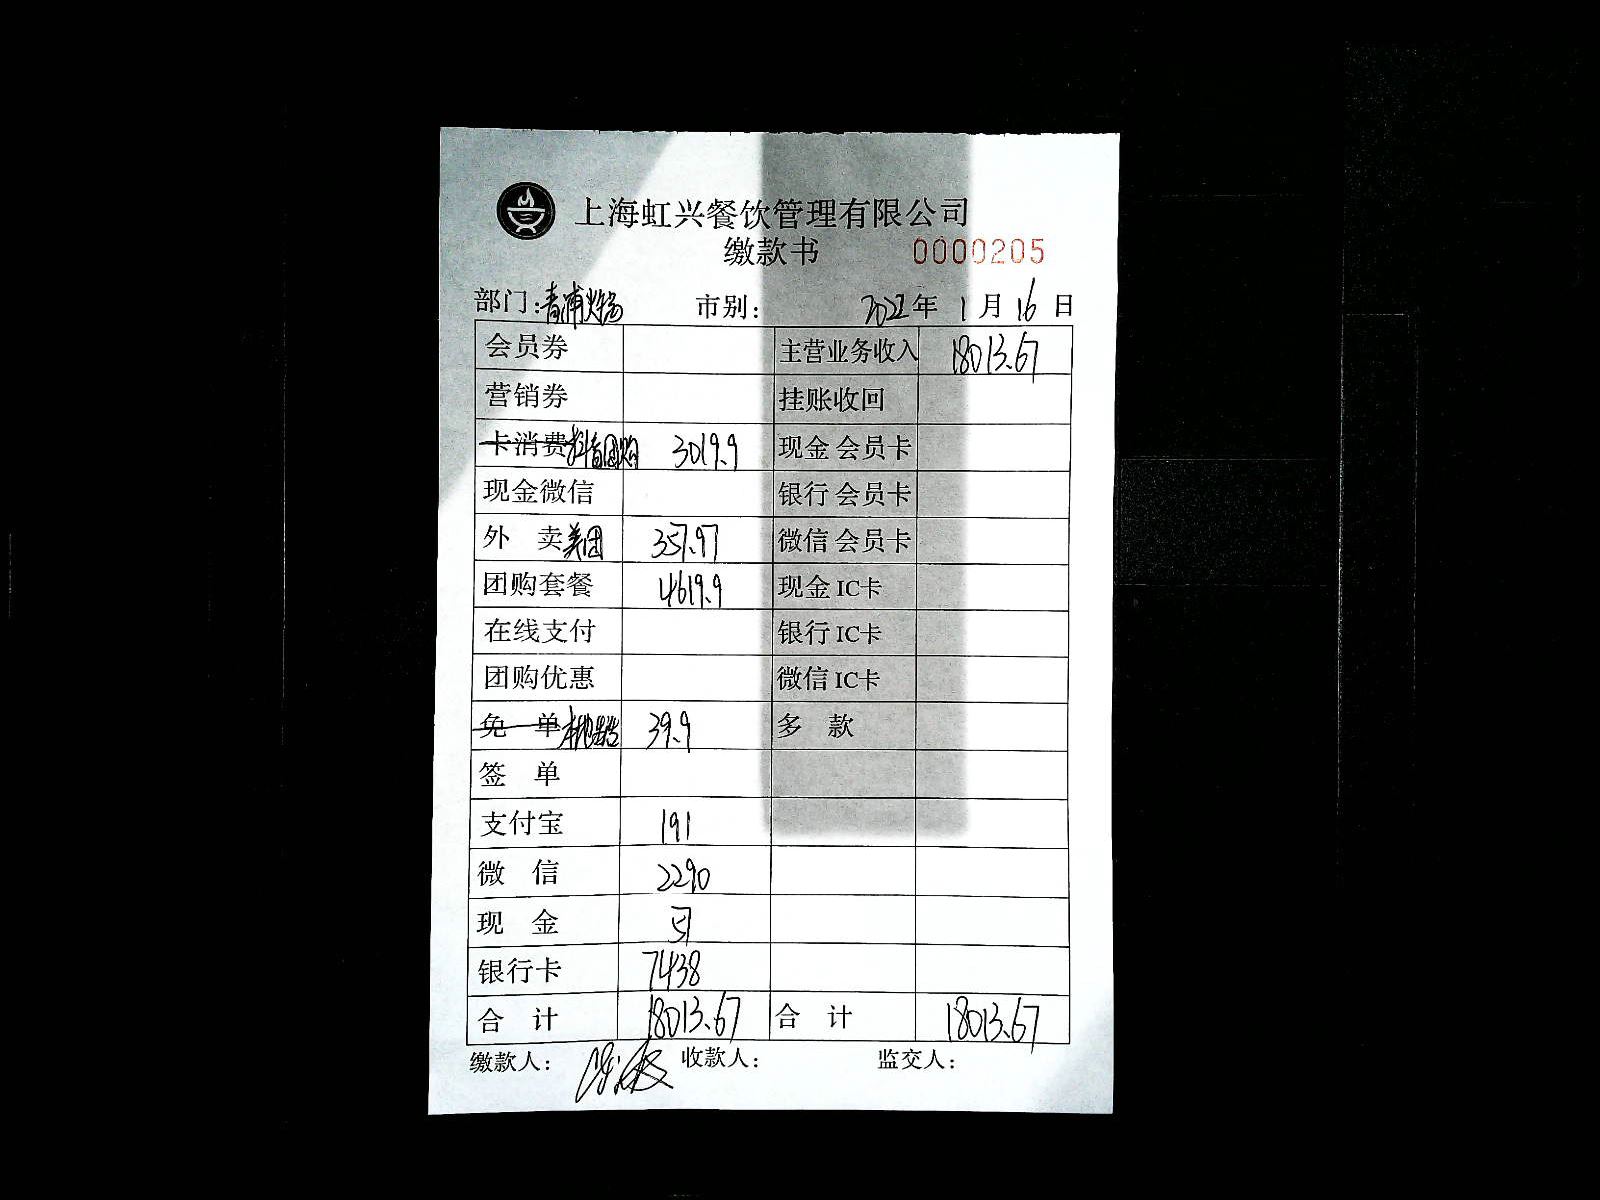 上海虹兴餐饮管理有限公司
缴款书 0000205
部门:青浦 市别: 2022年 1月16日
会员券 主营业务收入 18013.67
营销券 挂账收回
卡消费抖音团购 3019.9 现金 会员卡
现金微信 银行 会员卡
外 卖美团 357.97 微信 会员卡
团购套餐 4619.9 现金 IC卡
在线支付 银行 IC卡
团购优惠 微信 IC卡
免 单 39.9 多 款
签 单
支付宝 191
微 信 2290
现 金 57
银行卡 7438
合 计 18013.67 合 计 18013.67
缴款人: 收款人: 监交人: